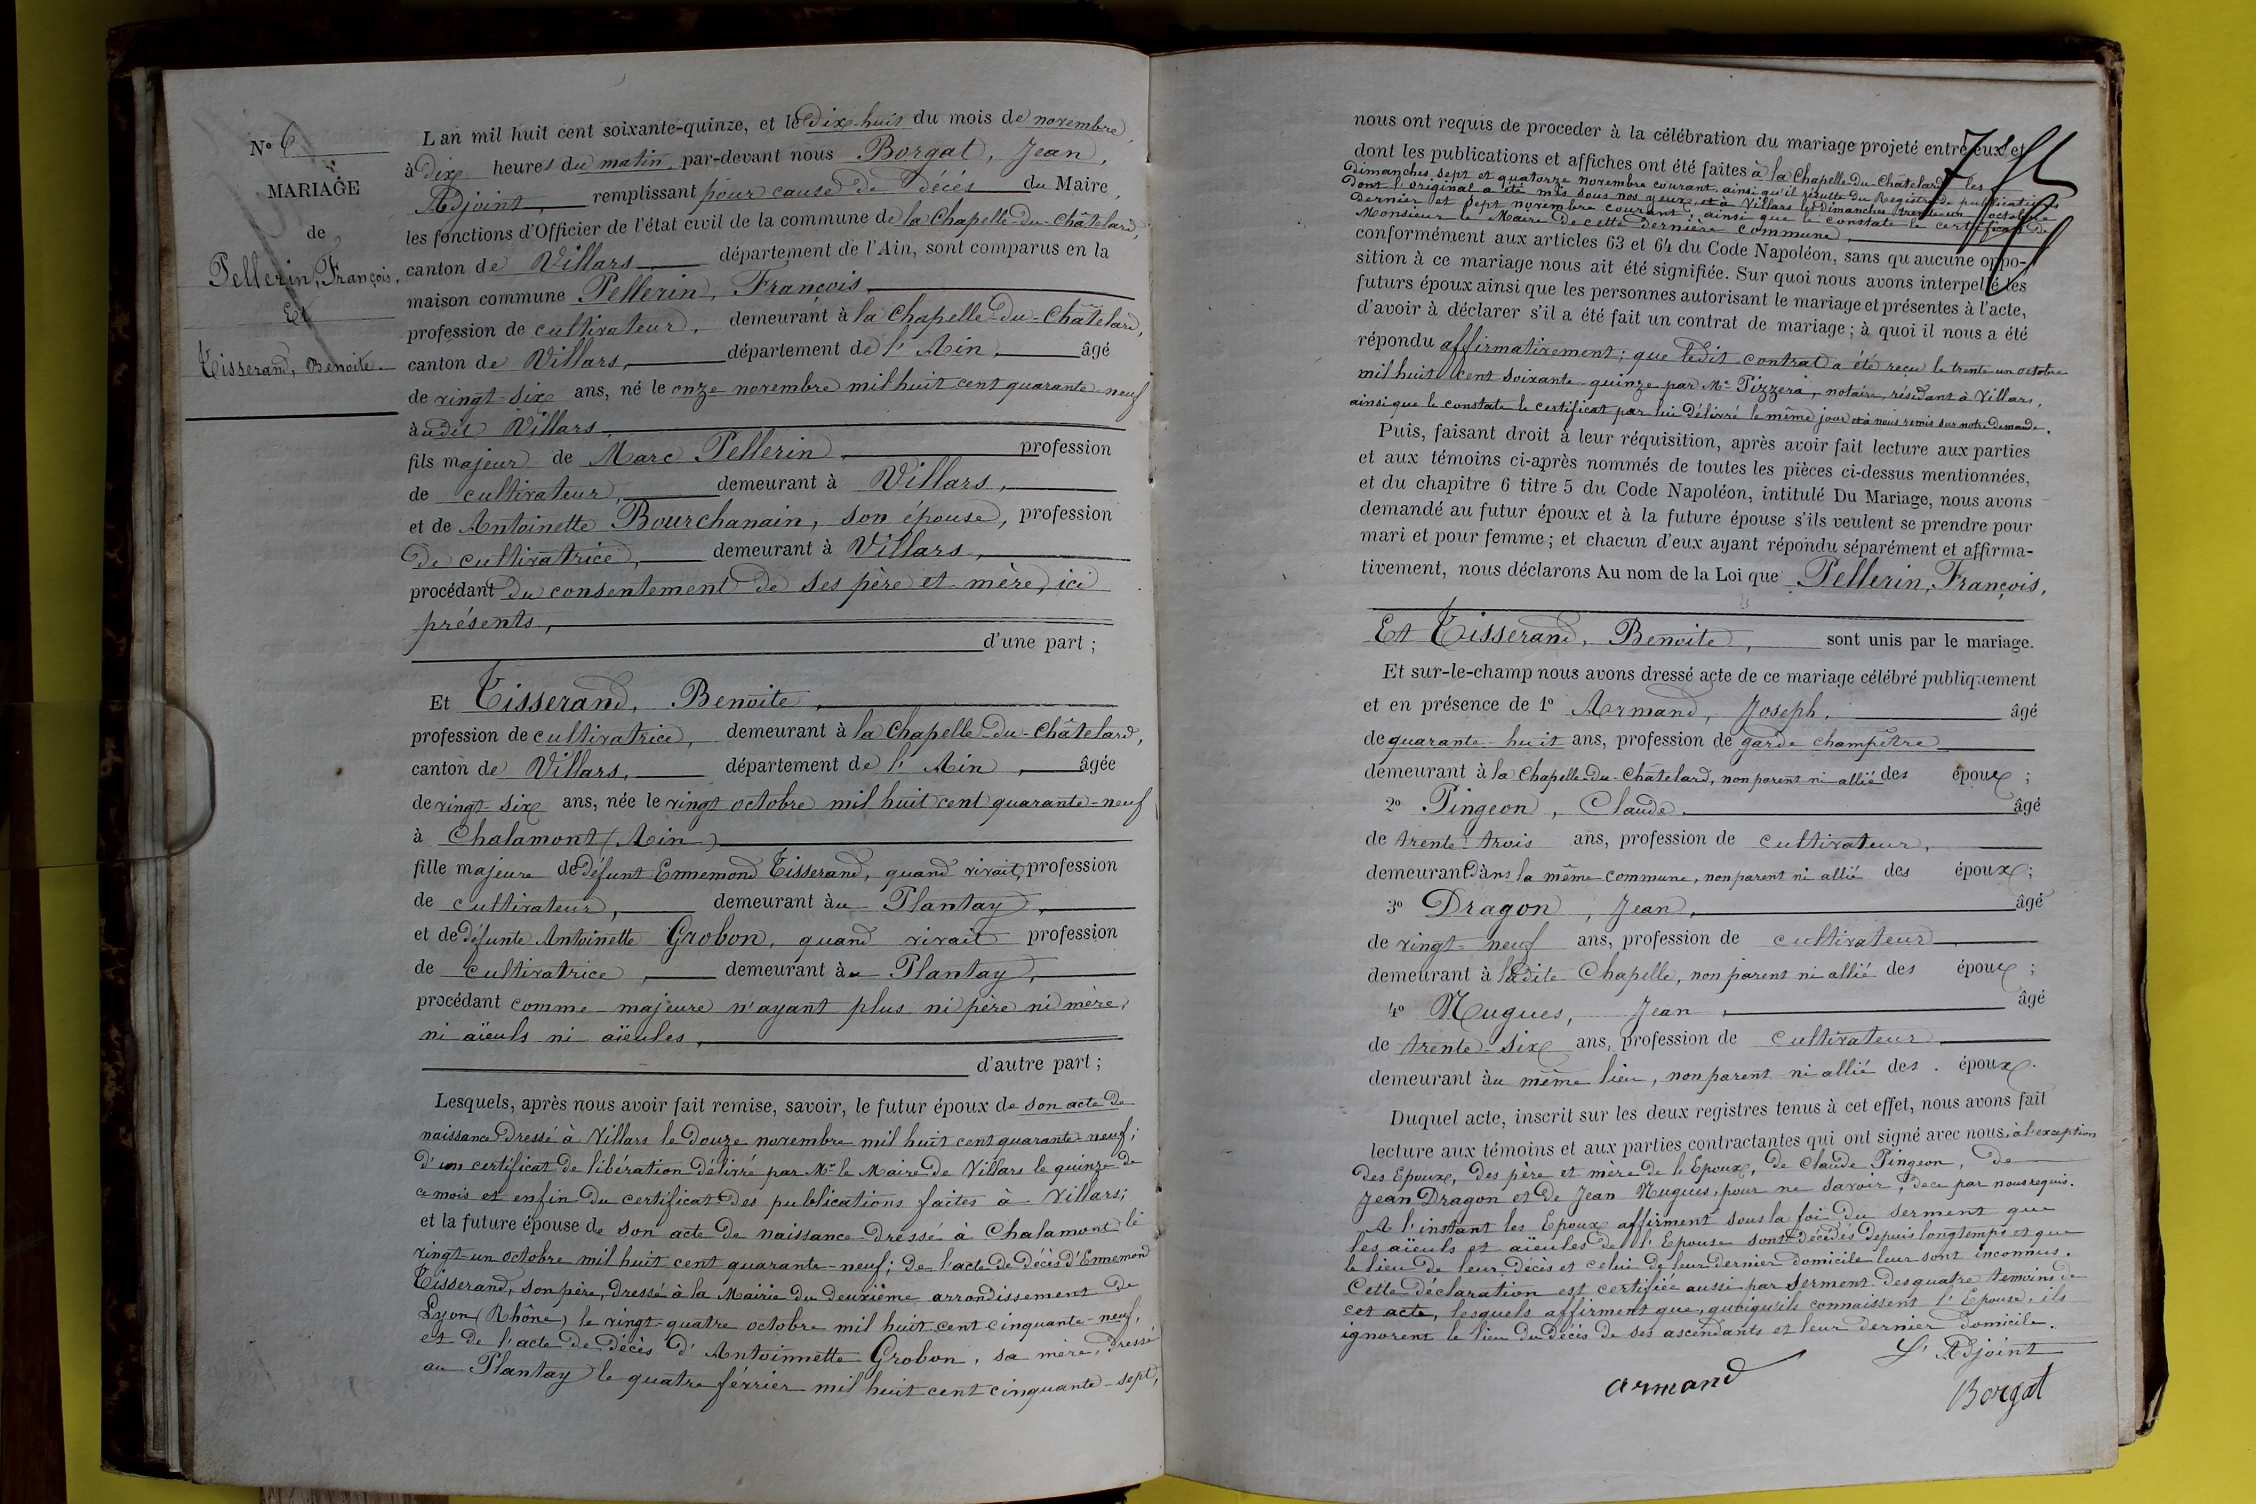 N° 6
MARIAGE
de
Pellerin, François,
Et
Tisserand, Benoite.
L'an mil huit cent soixante-quinze, et le dix-huit du mois de novembre
à dix heures du matin par-devant nous Borgat, Jean,
Adjoint, remplissant pour cause de décès du Maire,
les fonctions d'Officier de l'état civil de la commune de la Chapelle-du-Châtelard,
canton de Villars, département de l'Ain, sont comparus en la
maison commune Pellerin, François
profession de cultivateur, demeurant à la Chapelle-du-Châtelard,
canton de Villars, département de l'Ain, âgé
de vingt-six ans, né le onze novembre mil huit cent quarante-neuf
à udit Villars
fils majeur de Marc Pellerin profession
de cultivateur, demeurant à Villars,
et de Antoinette Bourchanain, son épouse, profession
de cultivatrice, demeurant à Villars,
procédant du consentement de ses père et mère, ici
présents,
d'une part ;
Et Tisserand, Benoite,
profession de cultivatrice, demeurant à la Chapelle-du-Châtelard,
canton de Villars, département de l'Ain, âgée
de vingt-six ans, née le vingt octobre mil huit cent quarante-neuf
à Chalamont (Ain)
fille majeure de défunt Ennemond Tisserand, quand vivait, profession
de cultivateur, demeurant àu Plantay,
et de défunte Antoinette Grobon, quand vivait profession
de cultivatrice, demeurant àu Plantay,
procédant comme majeure n'ayant plus ni père ni mère,
ni aïeuls ni aïeules,
d'autre part ;
Lesquels, après nous avoir fait remise, savoir, le futur époux de son acte de
naissance dressé à Villars le douze novembre mil huit cent quarante-neuf ;
d'un certificat de libération délivré par Mr le Maire de Villars le quinze de
ce mois et enfin du certificat des publications faites à Villars ;
et la future épouse de son acte de naissance dressé à Chalamont le
vingt-un octobre mil huit cent quarante-neuf ; de l'acte de décès d'Ennemond
Tisserand, son père, dressé à la Mairie du deuxième arrondissement de
Lyon (Rhône) le vingt-quatre octobre mil huit cent cinquante-neuf,
et de l'acte de décès d'Antoinnette Grobon, sa mère, dressé
au Plantay le quatre février mil huit cent cinquante-sept,
nous ont requis de proceder à la célébration du mariage projeté entre eux et
dont les publications et affiches ont été faites à la Chapelle-du-Châtelard les
dimanches sept et quatorze novembre courant, ainsi qu'il résulte du Registre de publications
dont l'original a été mis sous nos yeux, et à Villars les dimanches trente-un octobre
dernier et sept novembre courant ; ainsi que le constate le certificat de
Monsieur le Maire de cette dernière commune,
conformément aux articles 63 et 64 du Code Napoléon, sans qu'aucune oppo-
sition à ce mariage nous ait été signifiée. Sur quoi nous avons interpellé les
futurs époux ainsi que les personnes autorisant le mariage et présentes à l'acte,
d'avoir à déclarer s'il a été fait un contrat de mariage ; à quoi il nous a été
répondu affirmativement ; que ledit contrat a été reçu le trente-un octobre
mil huit cent soixante-quinze par Me Pizzera, notaire, résidant à Villars,
ainsi que le constate le certificat par lui délivré le même jour et à nous remis sur notre demande.
Puis, faisant droit à leur réquisition, après avoir fait lecture aux parties
et aux témoins ci-après nommés de toutes les pièces ci-dessus mentionnées,
et du chapitre 6 titre 5 du Code Napoléon, intitulé Du Mariage, nous avons
demandé au futur époux et à la future épouse s'ils veulent se prendre pour
mari et pour femme ; et chacun d'eux ayant répondu séparément et affirma-
tivement, nous déclarons Au nom de la Loi que Pellerin, François,
Et Tisserand, Benoite, sont unis par le mariage.
Et sur-le-champ nous avons dressé acte de ce mariage célébré publiquement
et en présence de 1° Armand, Joseph, âgé
de quarante-huit ans, profession de garde champêtre
demeurant à la Chapelle-du-Châtelard, non parent ni allié des époux ;
2° Pingeon, Claude, âgé
de trente-trois ans, profession de cultivateur,
demeurant dans la même commune, non parent ni allié des époux ;
3° Dragon, Jean, âgé
de vingt-neuf ans, profession de cultivateur
demeurant à ladite Chapelle, non parent ni allié des époux ;
4° Nugues, Jean, âgé
de trente-six ans, profession de cultivateur
demeurant àu même lieu, non parent ni allié des époux.
Duquel acte, inscrit sur les deux registres tenus à cet effet, nous avons fait
lecture aux témoins et aux parties contractantes qui ont signé avec nous, à l'exception
des Epoux, des père et mère de l'Epoux, de Claude Pingeon, de
Jean Dragon et de Jean Nugues, pour ne savoir, de ce par nous requis.
A l'instant les Epoux affirment sous la foi du serment que
les aïeuls et aïeules de l'Epouse sont décédés depuis longtemps et que
le lieu de leur décès et celui de leur dernier domicile leur sont inconnus.
Cette déclaration est certifiée aussi par serment des quatre témoins de
cet acte, lesquels affirment que, quoiqu'ils connaissent l'Epouse, ils
ignorent le lieu du décès de ses ascendants et leur dernier domicile.
L'Adjoint
Armand
Borgat